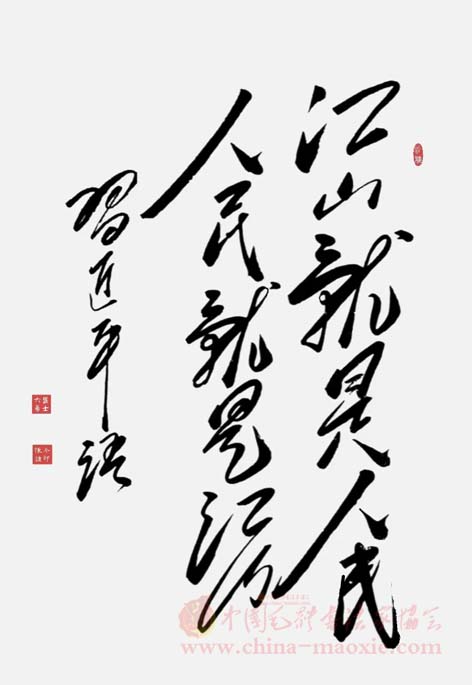 江山就是人民
人民就是江山
习近平语
中国毛体书法家协会
www.china-maoxie.com